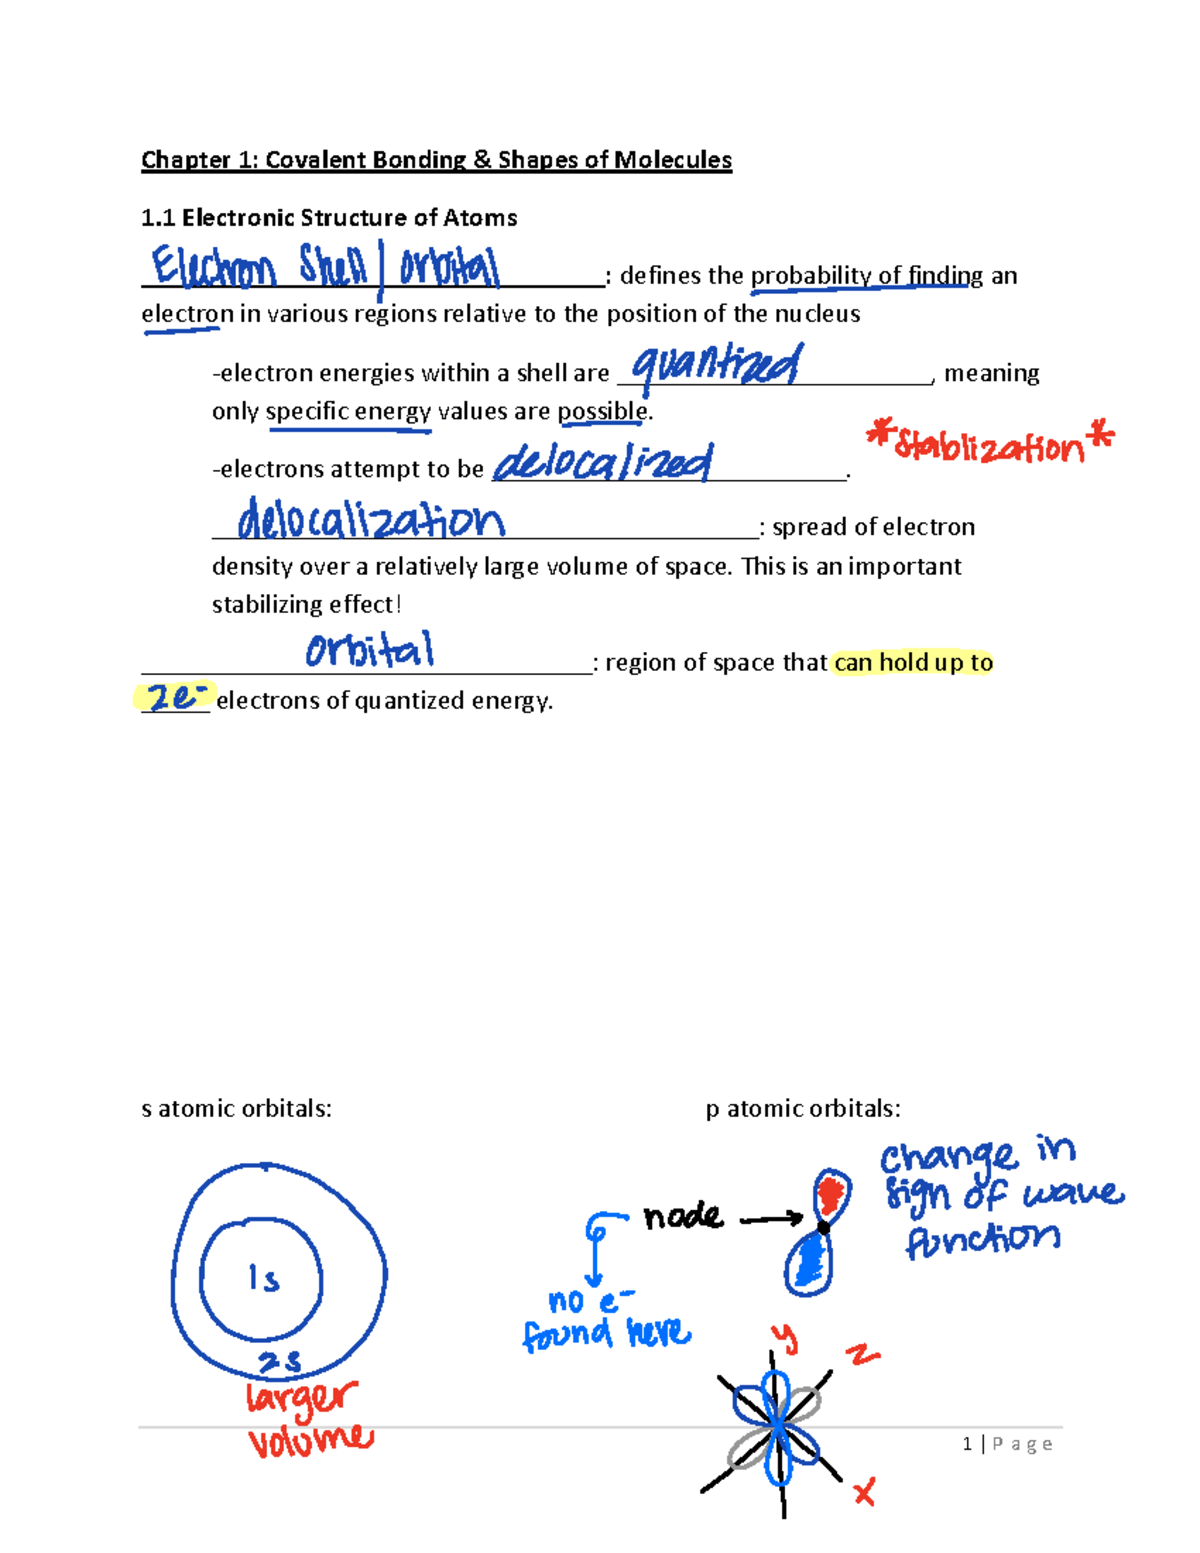 Chapter 1: Covalent Bonding & Shapes of Molecules
1.1 Electronic Structure of Atoms
Electron Shell | orbital : defines the probability of finding an
electron in various regions relative to the position of the nucleus
-electron energies within a shell are quantized, meaning
only specific energy values are possible.
*Stablization*
-electrons attempt to be delocalized.
delocalization : spread of electron
density over a relatively large volume of space. This is an important
stabilizing effect!
orbital : region of space that can hold up to
2e- electrons of quantized energy.
s atomic orbitals:
p atomic orbitals:
1s
2s
larger
volume
node
no e-
found here
change in
sign of wave
function
y
z
x
1 | Page